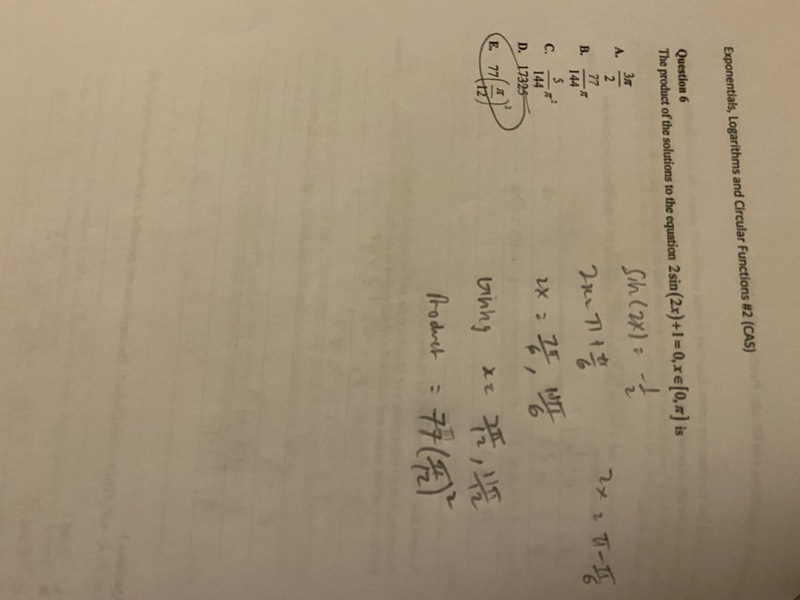 Exponentials, Logarithms and Circular Functions #2 (CAS)
Question 6
The product of the solutions to the equation 2 sin(2x)+1=0, x∈[0,π] is
A. 3π/2
B. 77/144 π
C. 5/144 π²
D. 17325
E. 77(π/12)²
Sin(2x) = -1/2
2x = π + π/6
2x = π - π/6
2x = 7π/6, 11π/6
Giving x = 7π/12, 11π/12
Product = 77(π/12)²